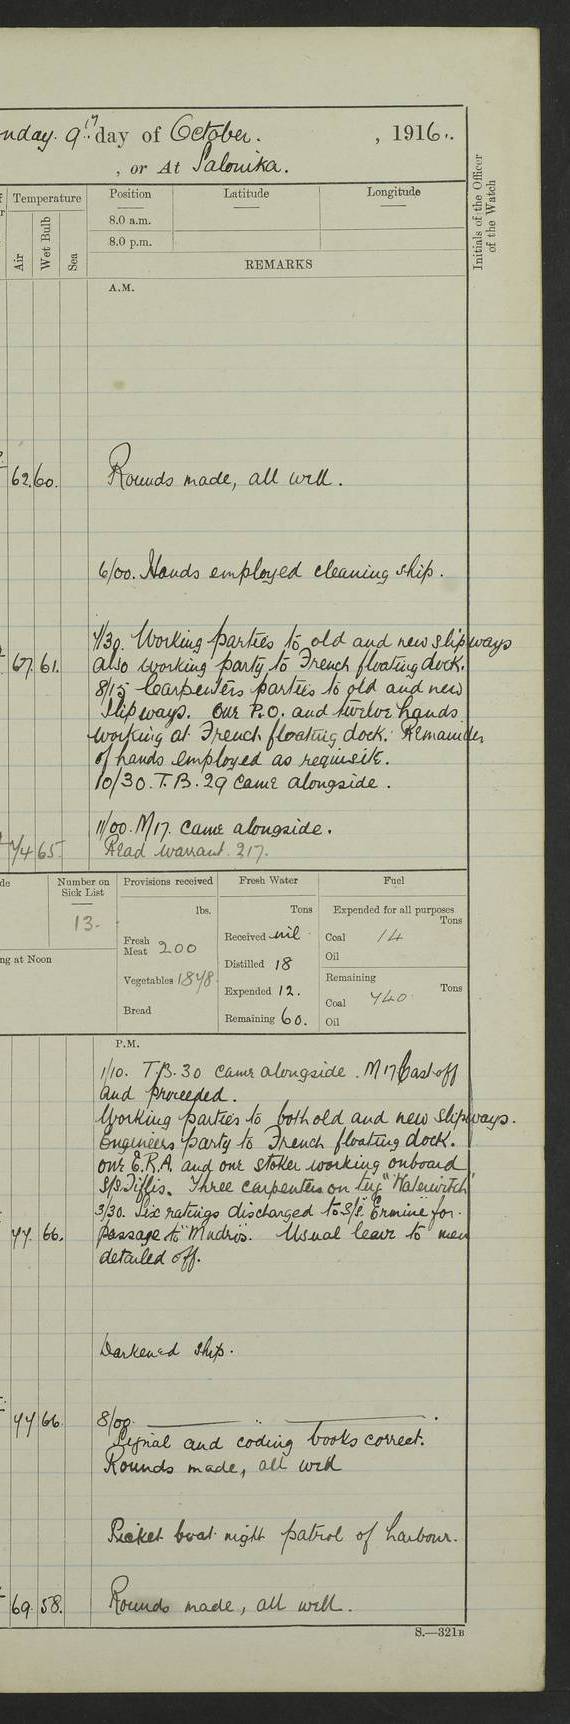 nday 9th day of October. , 1916..
, or At Salonika.
Temperature
Air
Wet Bulb
Sea
Position
Latitude
Longitude
8.0 a.m.
8.0 p.m.
REMARKS
Initials of the Officer
of the Watch
A.M.
62. 60. Rounds made, all well.
6/00. Hands employed cleaning ship.
7/30. Working parties to old and new slipways
67. 61. also working party to French floating dock.
8/15 Carpenters parties to old and new
slipways. One P.O. and twelve hands
working at French floating dock. Remainder
of hands employed as requisite.
10/30. T.B. 29 came alongside.
11/00. M17. came alongside.
74 65. Read warrant. 217.
Number on
Sick List
13.
ng at Noon
Provisions received
lbs.
Fresh
Meat 200
Vegetables 1878
Bread
Fresh Water
Tons
Received nil
Distilled 18
Expended 12.
Remaining 60.
Fuel
Expended for all purposes
Tons
Coal 14
Oil
Remaining
Tons
Coal 740
Oil
P.M.
1/10. T.B. 30 came alongside. M17 Cast off
and proceeded.
Working parties to both old and new slipways.
Engineers party to French floating dock.
one E.R.A. and one stoker working onboard
S/S. Tiflis. Three carpenters on tug "Waterwitch"
3/30. Six ratings discharged to S/S. Ermine for
77. 66. passage to "Mudros. Usual leave to men
detailed off.
Darkened ship.
77 66. 8/00. ——— " ———.
Signal and coding books correct.
Rounds made, all well
Picket boat night patrol of harbour.
69 58. Rounds made, all well.
S.—321B